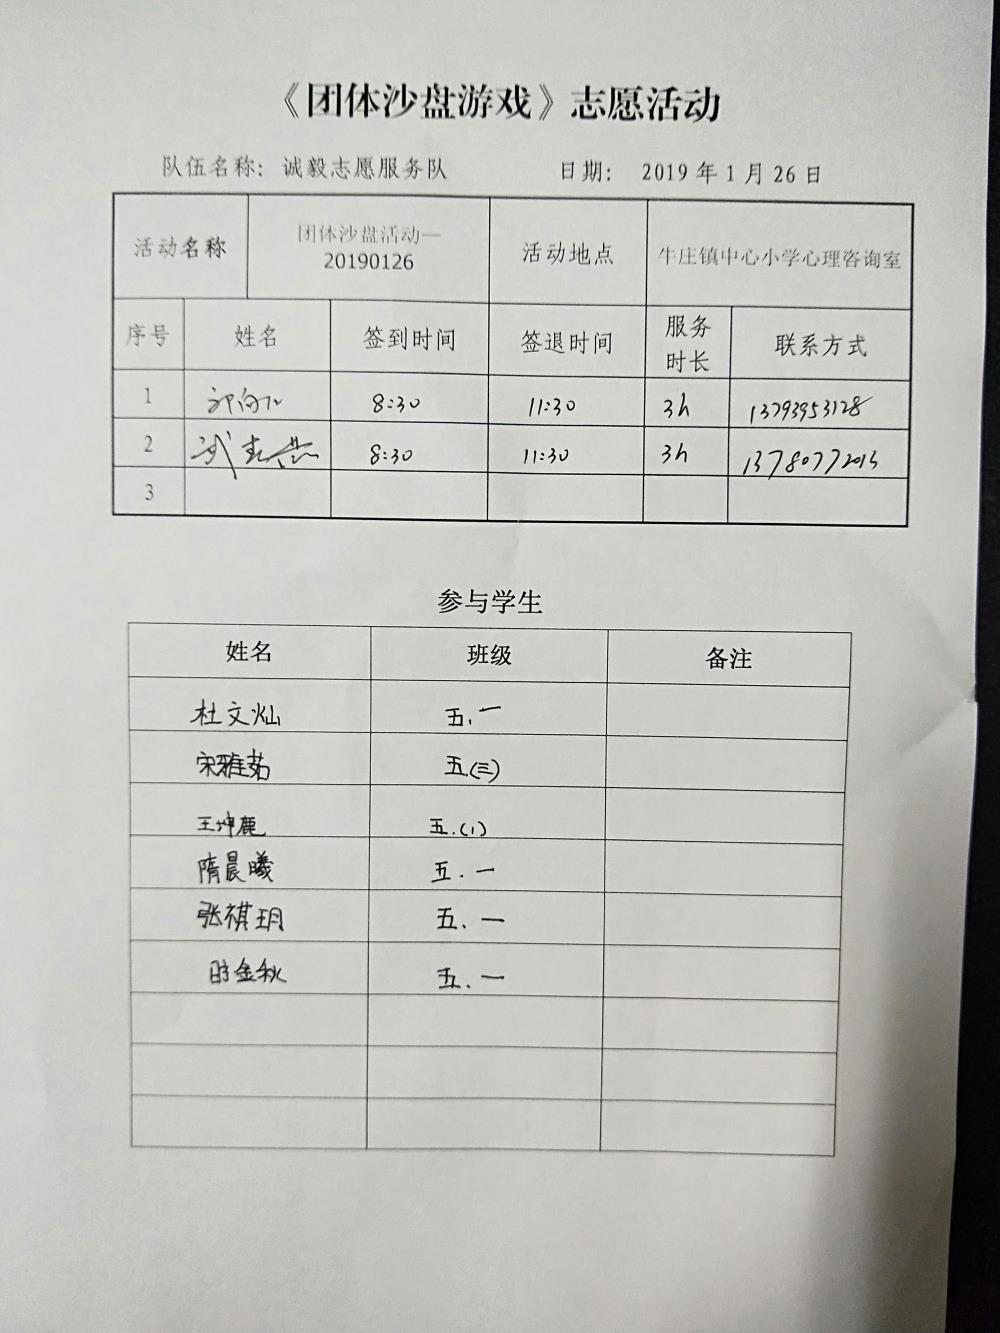 《团体沙盘游戏》志愿活动
队伍名称：诚毅志愿服务队 日期： 2019 年 1 月 26 日
活动名称 团体沙盘活动—20190126 活动地点 牛庄镇中心小学心理咨询室
序号 姓名 签到时间 签退时间 服务时长 联系方式
1 8:30 11:30 3h 13793953128
2 8:30 11:30 3h 13780772013
3
参与学生
姓名 班级 备注
杜文灿 五.一
宋雅茹 五.(三)
王坤鹿 五.(1)
隋晨曦 五.一
张祺玥 五.一
时金秋 五.一